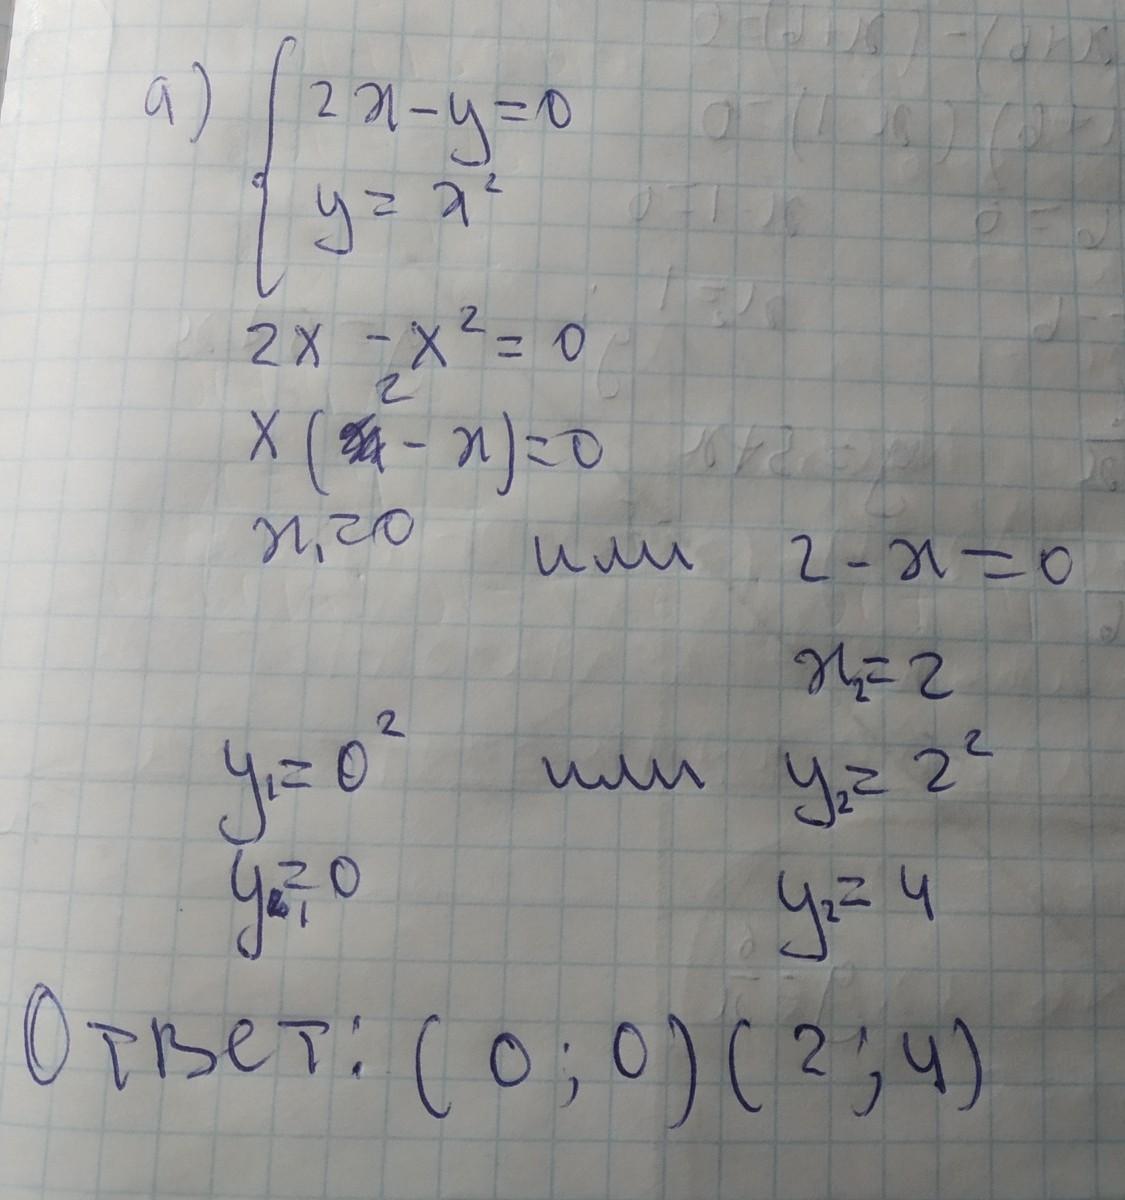 а) { 2x - y = 0
y = x²
2x - x² = 0
x(2 - x) = 0
x₁ = 0 или 2 - x = 0
x₂ = 2
y₁ = 0² или y₂ = 2²
y₁ = 0 y₂ = 4
Ответ: (0; 0) (2; 4)